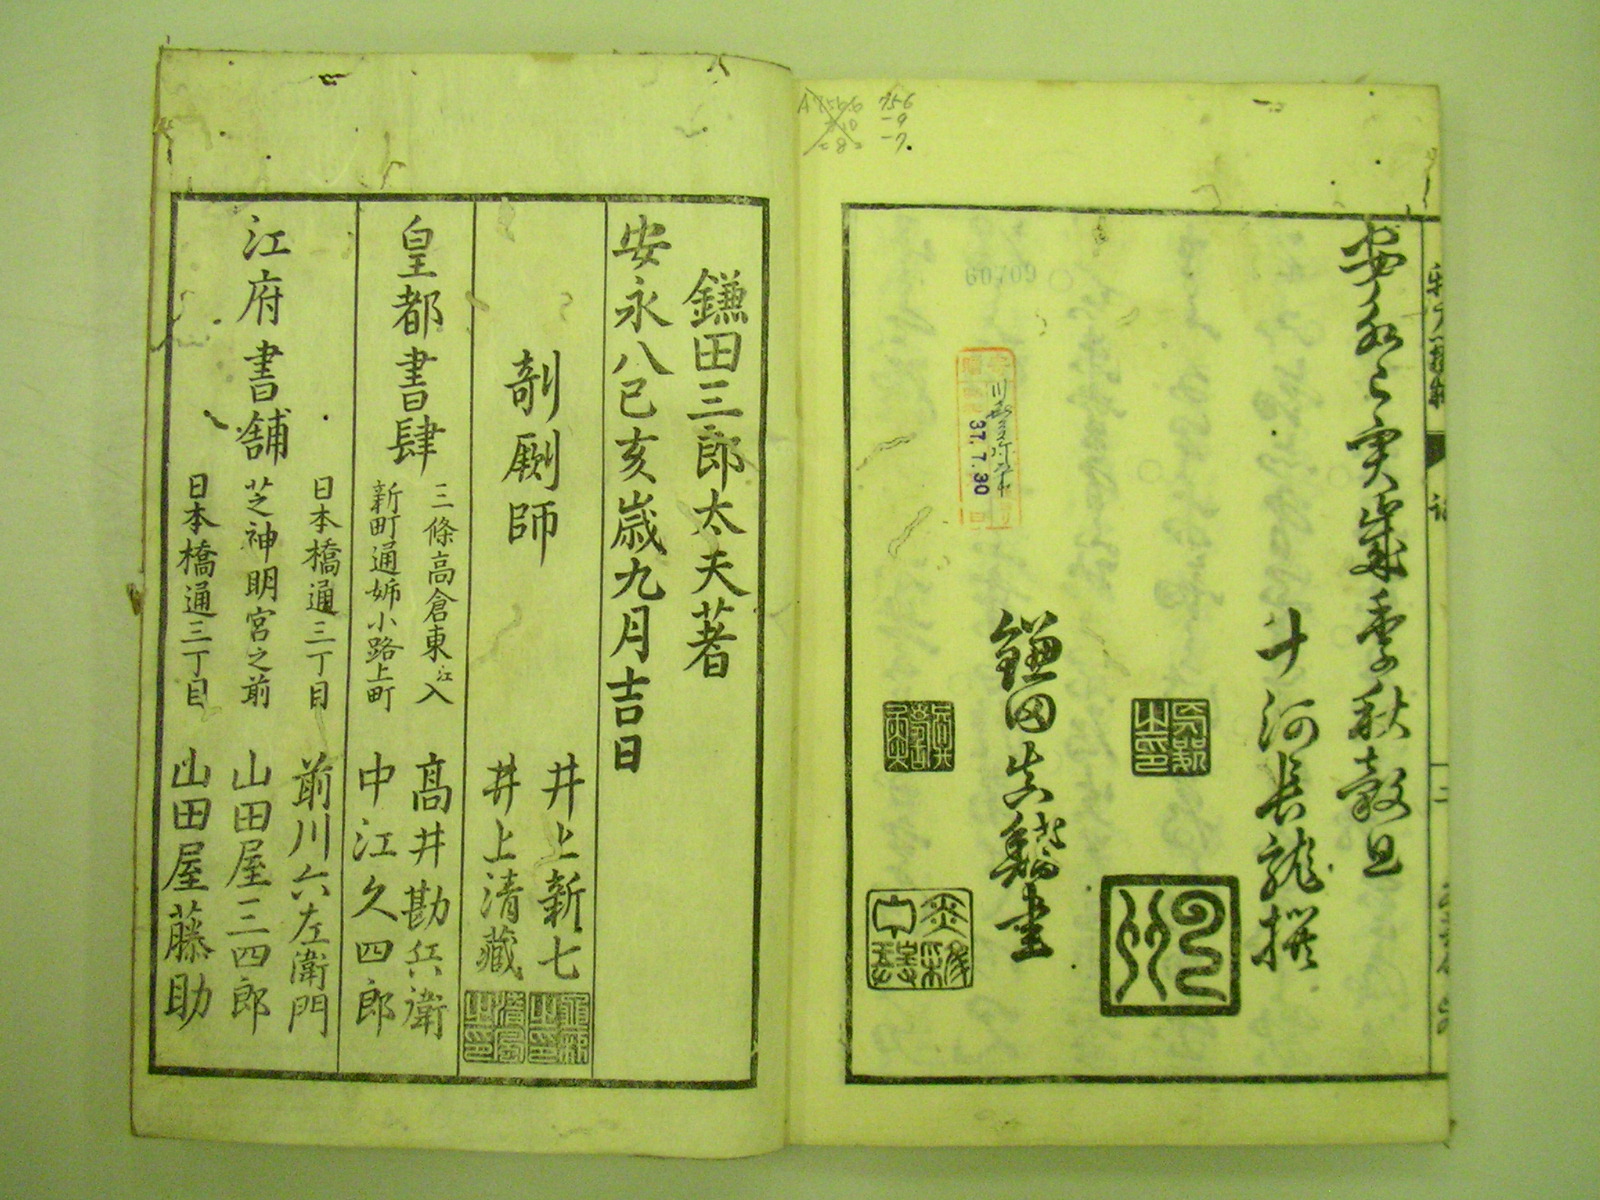 756
-9
-7.
安永己亥歳季秋穀旦
十河長龍撰
鎌田
書
60709
37.7.30
鎌田三郎太夫著
安永八己亥歳九月吉日
剞劂師
井上新七
井上清藏
皇都書肆
三條高倉東江入
高井勘兵衛
新町通姉小路上町
中江久四郎
江府書舗
日本橋通三丁目
前川六左衛門
芝神明宮之前
山田屋三四郎
日本橋通三丁目
山田屋藤助